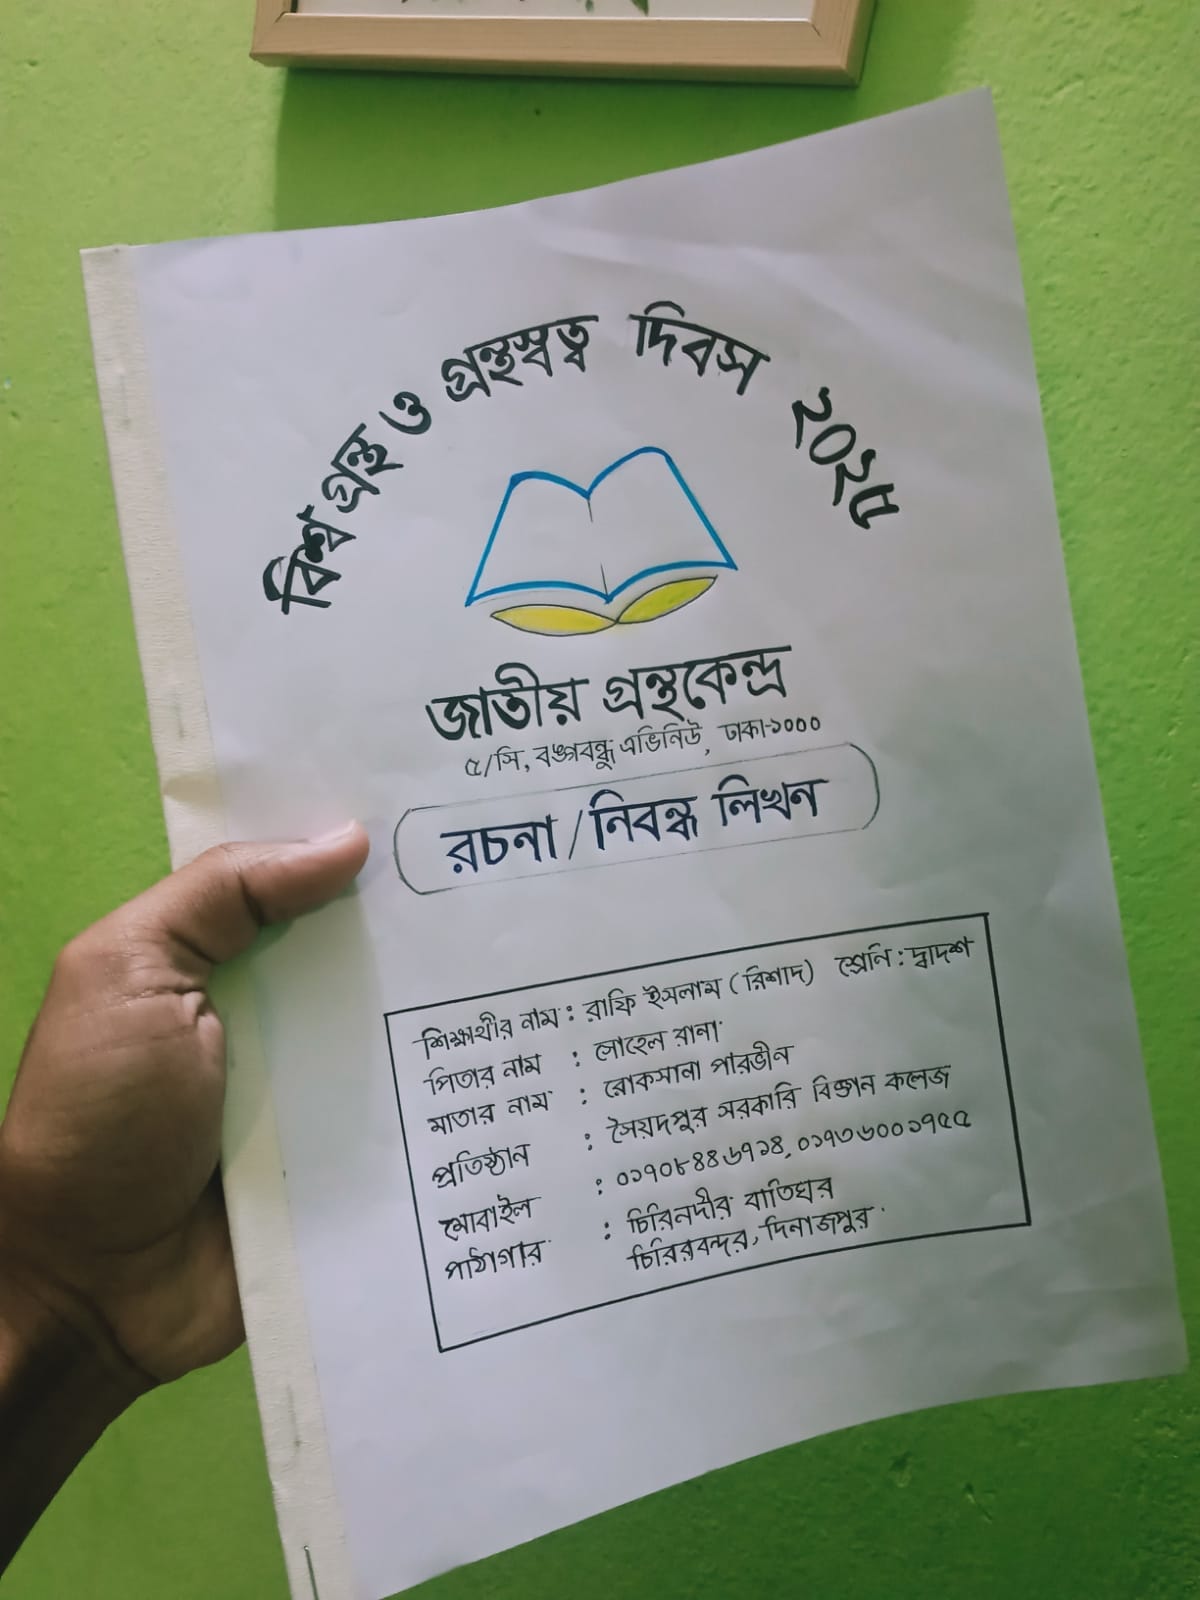 বিশ্ব গ্রন্থ ও গ্রন্থস্বত্ব দিবস ২০২৫
জাতীয় গ্রন্থকেন্দ্র
৫/সি, বঙ্গবন্ধু এভিনিউ, ঢাকা-১০০০
রচনা/নিবন্ধ লিখন
শিক্ষার্থীর নাম : রাফি ইসলাম (রিশাদ) শ্রেণি : দ্বাদশ
পিতার নাম : সোহেল রানা
মাতার নাম : রোকসানা পারভীন
প্রতিষ্ঠান : সৈয়দপুর সরকারি বিজ্ঞান কলেজ
মোবাইল : ০১৭০৮৪৪৬৭১৪, ০১৭৩৬০০১৭৫৫
পাঠাগার : চিরিনদীর বাতিঘর
চিরিরবন্দর, দিনাজপুর